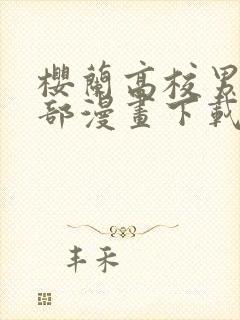 櫻蘭高校男
部漫畫下載
丰禾